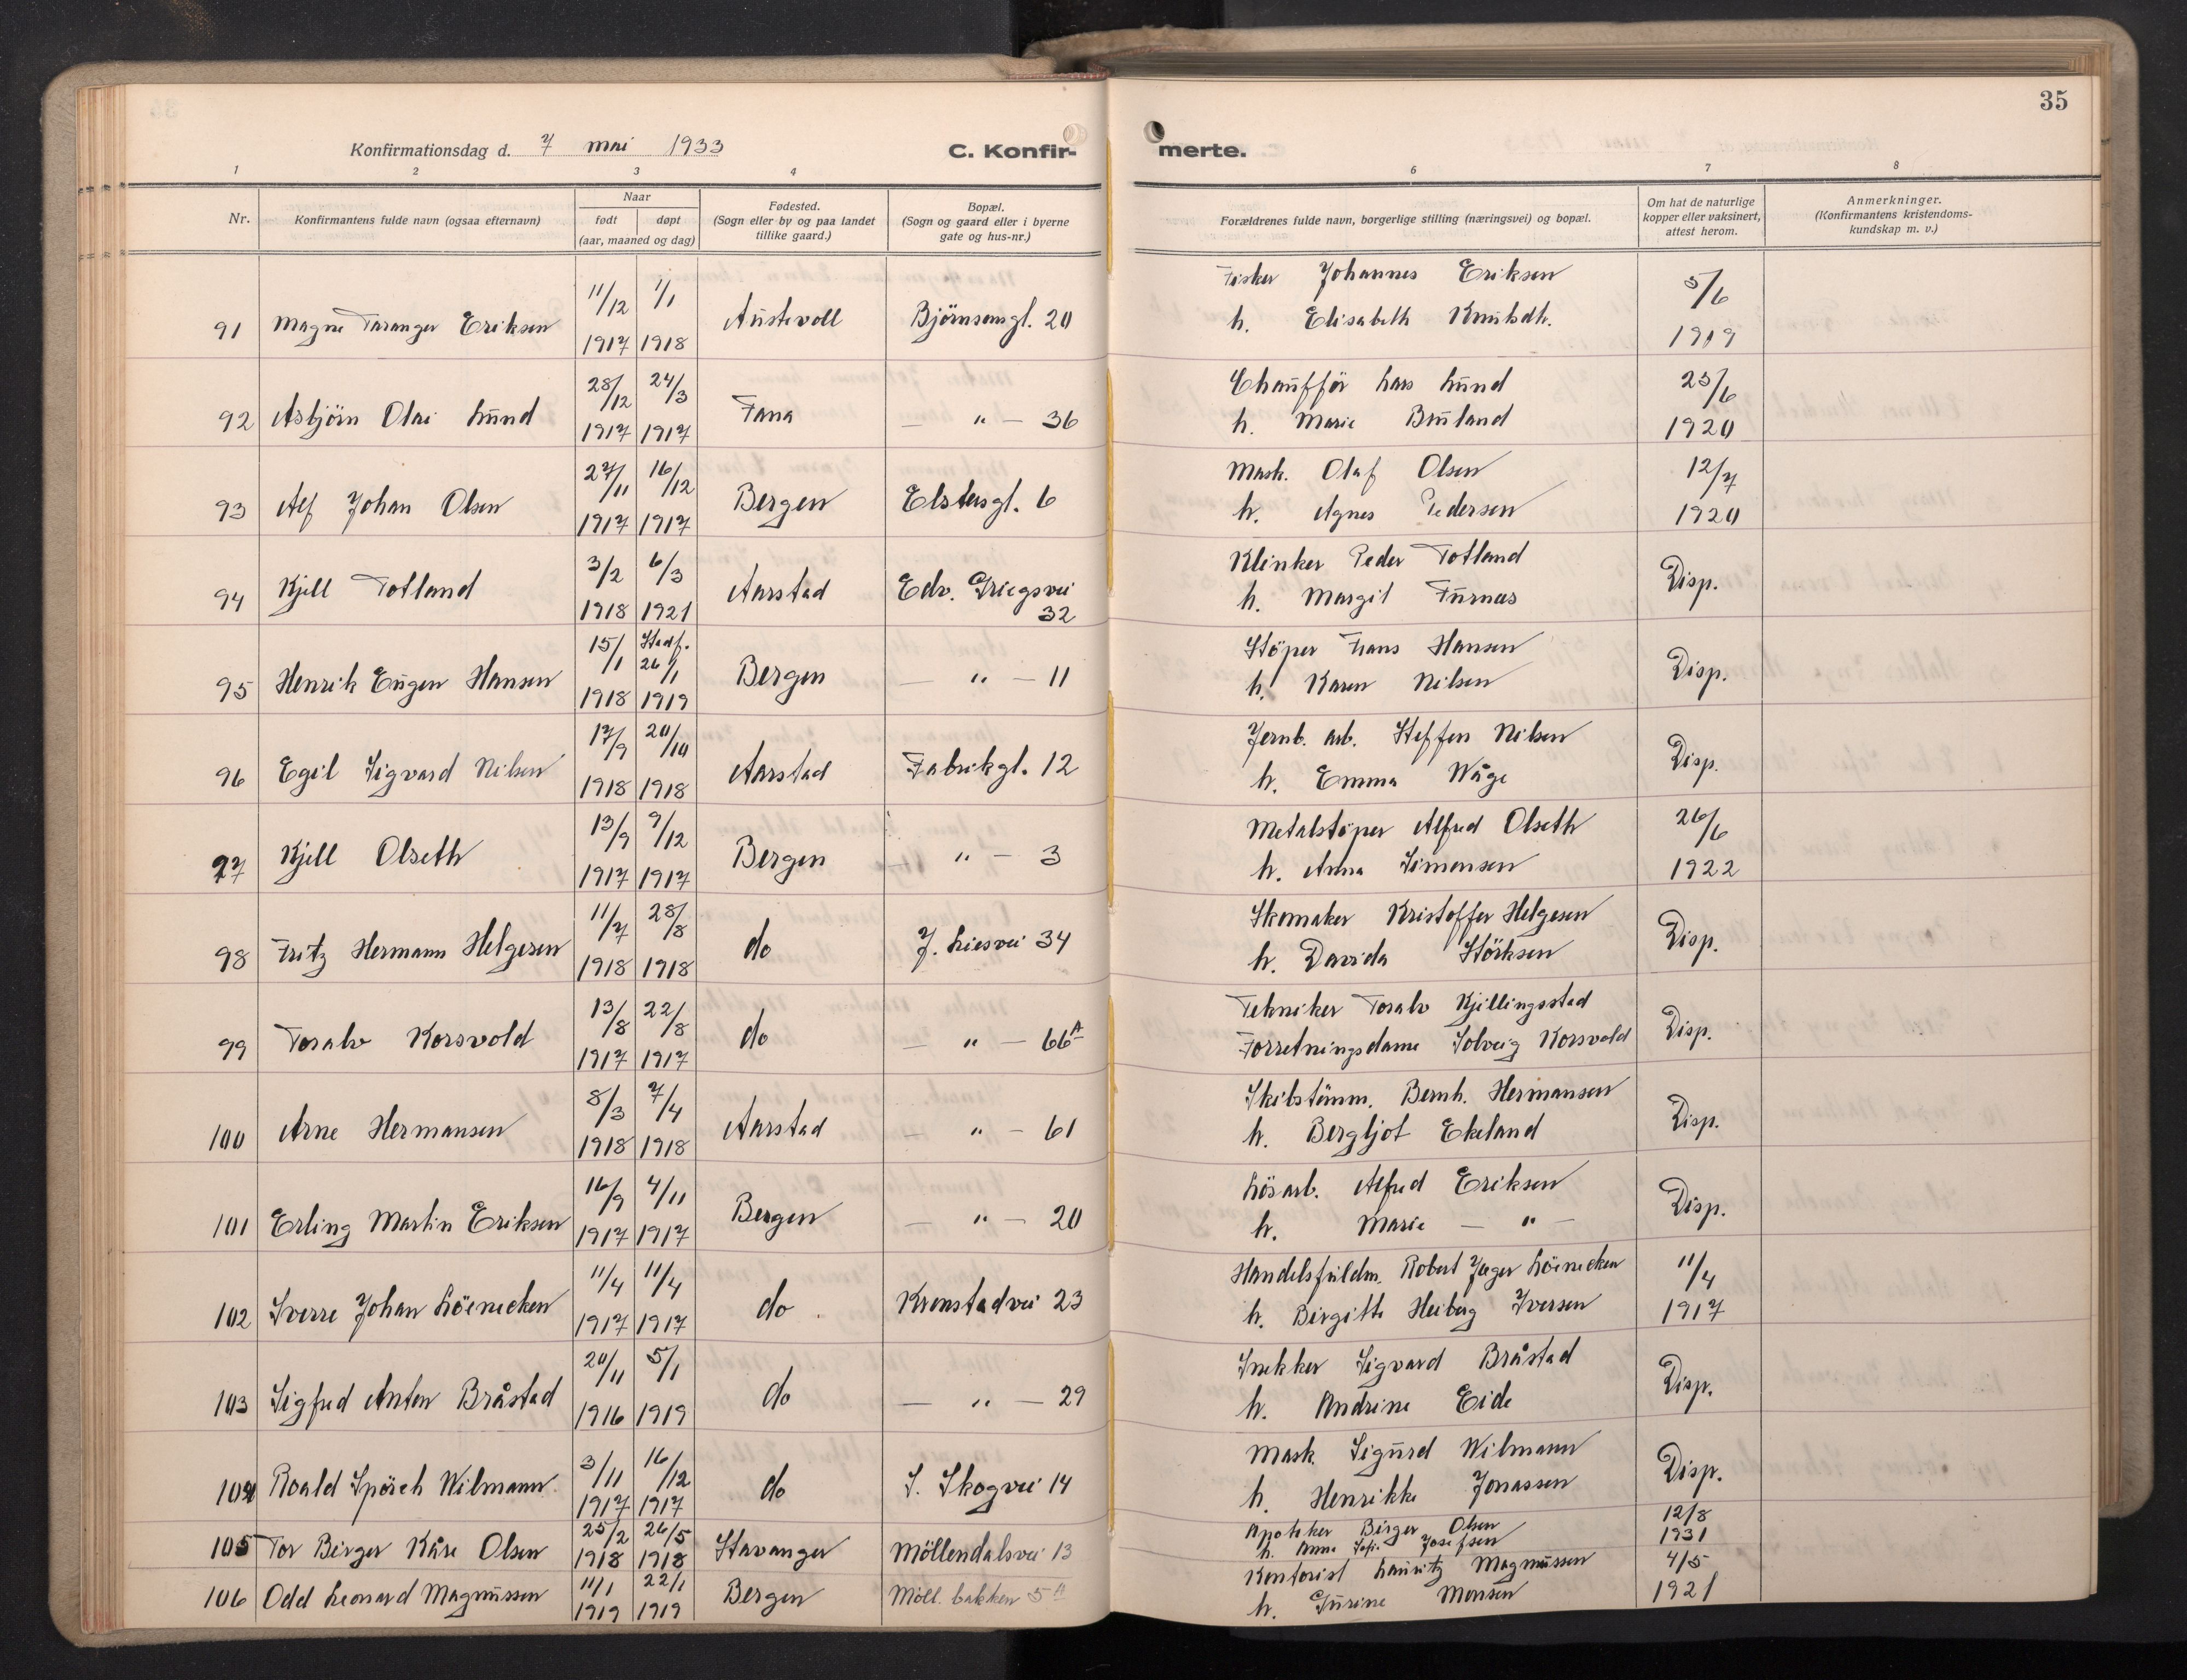 35
Konfirmationsdag d. 7 mai 1933
C. Konfir-
merte.
1 2 3 4 6 7 8
Nr.
Konfirmantens fulde navn (ogsaa efternavn)
Naar
født døpt
(aar, maaned og dag)
Fødested.
(Sogn eller by og paa landet
tillike gaard.)
Bopæl.
(Sogn og gaard eller i byerne
gate og hus-nr.)
Forældrenes fulde navn, borgerlige stilling (næringsvei) og bopæl.
Om hat de naturlige
kopper eller vaksinert,
attest herom.
Anmerkninger.
(Konfirmantens kristendoms-
kundskap m. v.)
11/12 1/1 Fisker Johannes Eriksen 5/6
91 Magne Taranger Eriksen Austevoll Björnsonsgt. 20 h. Elisabeth Knutsdtr.
1917 1918 1919
28/12 24/3 Chauffför Lars Lund 25/6
92 Asbjörn Olai Lund Fana — " — 36 h. Marie Buuland
1917 1917 1920
27/11 16/12 Mask. Olaf Olsen 12/7
93 Alf Johan Olsen Bergen Elstersgt. 6 h. Agnes Pedersen
1917 1917 1920
3/2 6/3 Klinker Peder Totland
94 Kjell Totland Aarstad Edv. Griegsvei h. Margit Furnes Disp.
1918 1921 32
15/1 Stadf. 26/1 Stöper Frans Hansen
95 Henrik Eugen Hansen Bergen — " — 11 h. Karen Nilsen Disp.
1918 1919
17/9 20/10 Jernb. arb. Steffen Nilsen
96 Egil Sigvard Nilsen Aarstad Fabrikgt. 12 h. Emma Wåge Disp.
1918 1918
13/9 9/12 Metalstöper Alfred Olseth 26/6
97 Kjell Olseth Bergen — " — 3 h. Anna Simonsen
1917 1917 1922
11/7 28/8 Skomaker Kristoffer Helgesen
98 Fritz Hermann Helgesen do J. Liesvei 34 h. Davida Störksen Disp.
1918 1918
13/8 22/8 Tekniker Toralv Kjellingsstad
99 Toralv Korsvold do — " — 66A Forretningsdame Solveig Korsvold Disp.
1917 1917
8/3 7/4 Skibstömm. Bernh. Hermansen
100 Arne Hermansen Aarstad — " — 61 h. Bergljot Ekeland Disp.
1918 1918
16/9 4/11 Lösarb. Alfred Eriksen
101 Erling Martin Eriksen Bergen — " — 20 h. Marie — " — Disp.
1917 1917
11/4 11/4 Handelsfuldm. Robert Jæger Löenecken 11/4
102 Sverre Johan Löenecken do. Kronstadvei 23 h. Birgitte Heiberg Iversen
1917 1917 1917
20/11 5/1 Snekker Sigvard Bråstad
103 Sigfred Anton Bråstad do — " — 29 h. Andrine Eide Disp.
1916 1919
3/11 16/12 Mask. Sigurd Wilmann
104 Roald Spörch Wilmann do S. Skogvei 14 h. Henrikke Jonassen Disp.
1917 1917
25/2 26/5 Apoteker Birger Olsen 12/8
105 Tor Birger Kåre Olsen Stavanger Möllendalsvei 13 h. Anna Sofi. Josefsen
1918 1918 1931
11/1 22/1 Kontorist Lauritz Magnussen 4/5
106 Odd Leonard Magnussen Bergen Möll. bakken 5A h. Gurine Monsen
1919 1919 1921